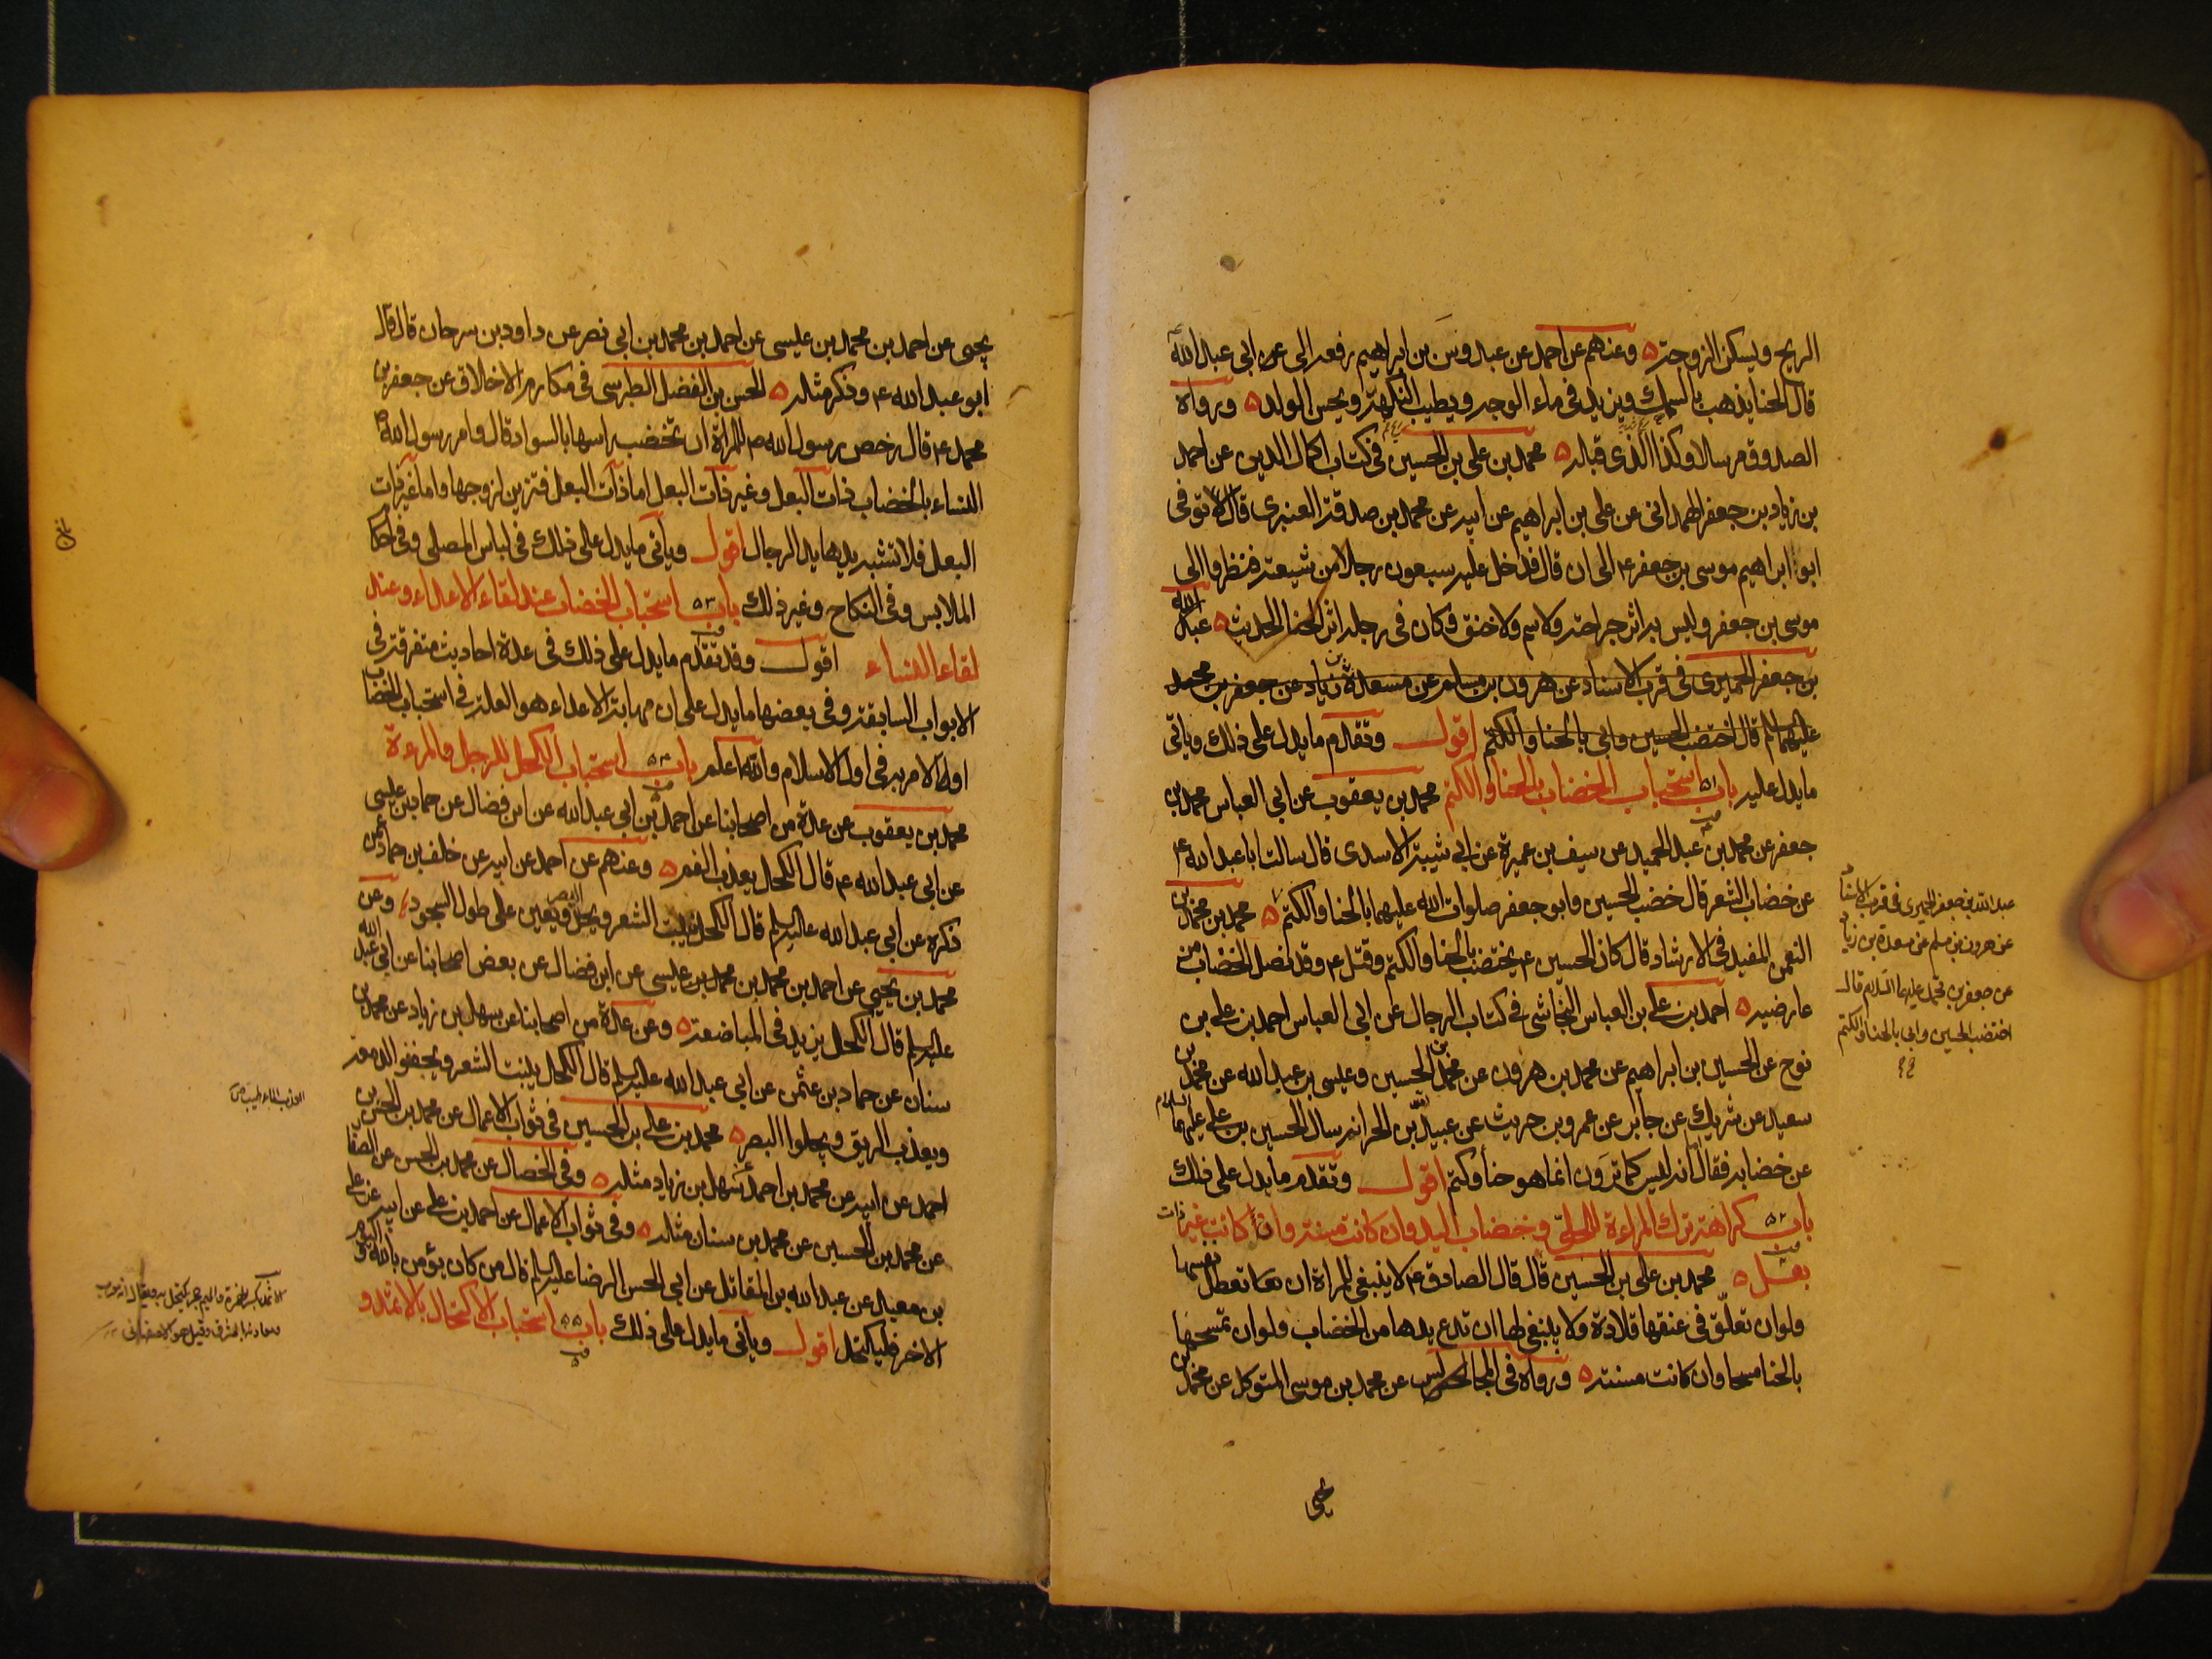 الريح ويسكن الزوجة وعنهم عن احمد عن عبدوس بن ابراهيم رفعه الى ابى عبد الله
قال الحنا يذهب بالسهك ويزيد فى ماء الوجه ويطيب النكهة ويحسن الولد ورواه
الصدوق مرسلا وكذا الذى قبله محمد بن على بن الحسين فى كتاب اكمال الدين عن احمد
بن زياد بن جعفر الهمدانى عن على بن ابراهيم عن ابيه عن محمد بن صدقة العنبرى قال لما توفى
ابو ابراهيم موسى بن جعفر ع الى ان قال فدخل عليه سبعون رجلا من شيعته فنظروا الى
موسى بن جعفر وليس به اثر جراحة ولا سم ولا خنق وكان فى رجله اثر الحنا الحديث عبد الله
بن جعفر الحميرى فى قرب الاسناد عن هرون بن مسلم عن مسعدة بن زياد عن جعفر بن محمد
عليهما السلام قال اختضب الحسين وابى بالحنا والكتم اقول وتقدم ما يدل على ذلك وياتى
ما يدل عليه باب ٥١ استحباب الخضاب بالحنا والكتم محمد بن يعقوب عن ابى العباس محمد بن
جعفر عن محمد بن عبد الحميد عن سيف بن عميرة عن ابى شيبة الاسدى قال سالت ابا عبد الله ع
عن خضاب الشعر قال خضب الحسين وابو جعفر صلوات الله عليهما بالحنا والكتم محمد بن محمد بن
النعمن المفيد فى الارشاد قال كان الحسين ع يختضب بالحنا والكتم وقتل ع وقد نصل الخضاب من
عارضيه احمد بن على بن العباس النجاشى فى كتاب الرجال عن ابى العباس احمد بن على بن
نوح عن الحسين بن ابراهيم عن محمد بن هرون عن محمد بن الحسين وعيسى بن عبد الله عن محمد بن
سعيد عن شريك عن جابر عن عمرو بن حريث عن عبيد الله بن الحر انه سال الحسين بن على عليهما السلام
عن خضابه فقال اما انه ليس كما ترون انما هو حنا وكتم اقول وتقدم ما يدل على ذلك
باب ٥٢ كراهة ترك المراءة للحلى وخضاب اليد وان كانت مسنة وان كانت غير ذات
بعل محمد بن على بن الحسين قال قال الصادق ع لا ينبغى للمراة ان تعطل نفسها
ولو ان تعلق فى عنقها قلادة ولا ينبغى لها ان تدع يدها من الخضاب ولو ان تمسحها
بالحنا مسحا وان كانت مسنة ورواه فى المجالس عن محمد بن موسى المتوكل عن محمد بن
يحيى
عبد الله بن جعفر الحميرى فى قرب الاسناد
عن هرون بن مسلم عن مسعدة بن زياد
عن جعفر بن محمد عليهما السلام قال
اختضب الحسين وابى بالحنا والكتم
يحيى عن احمد بن محمد بن عيسى عن احمد بن محمد بن ابى نصر عن داود بن سرحان قال قال
ابو عبد الله ع وذكر مثله الحسن بن الفضل الطبرسى فى مكارم الاخلاق عن جعفر بن
محمد ع قال رخص رسول الله ص للمراة ان تخضب راسها بالسواد قال وامر رسول الله ص
النساء بالخضاب ذات البعل وغير ذات البعل اما ذات البعل فتزين لزوجها واما غير ذات
البعل فلا تشبه يدها يد الرجال اقول وياتى ما يدل على ذلك فى لباس المصلى وفى احكام
الملابس وفى النكاح وغير ذلك باب ٥٣ استحباب الخضاب عند لقاء الاعداء وعند
لقاء النساء اقول وقد تقدم ما يدل على ذلك فى عدة احاديث متفرقة فى
الابواب السابقة وفى بعضها ما يدل على ان مهابة الاعداء هو العلة فى استحباب الخضاب
اول الامر به فى اول الاسلام والله اعلم باب ٥٤ استحباب الكحل للرجل والمرءة
محمد بن يعقوب عن عدة من اصحابنا عن احمد بن ابى عبد الله عن ابن فضال عن حماد بن عيسى
عن ابى عبد الله ع قال الكحل يعذب الفم وعنهم عن احمد عن ابيه عن خلف بن حماد عمن
ذكره عن ابى عبد الله عليه السلم قال الكحل ينبت الشعر ويحد البصر ويعين على طول السجود وعن
محمد بن يحيى عن احمد بن محمد بن محمد بن عيسى عن ابن فضال عن بعض اصحابنا عن ابى عبد الله
عليه السلم قال الكحل يزيد فى المباضعة وعن عدة من اصحابنا عن سهل بن زياد عن محمد بن
سنان عن حماد بن عثمن عن ابى عبد الله عليه السلم قال الكحل ينبت الشعر ويجفف الدمعة
ويعذب الريق ويجلوا البصر محمد بن على بن الحسين فى ثواب الاعمال عن محمد بن الحسن بن
احمد عن ابيه عن محمد بن احمد عن سهل بن زياد مثله وفى الخصال عن محمد بن الحسن عن الصفار
عن محمد بن الحسين عن محمد بن سنان مثله وفى ثواب الاعمال عن احمد بن على عن ابيه عن على
بن معبد عن عبد الله بن المقاتل عن ابى الحسن الرضا عليه السلم قال من كان يؤمن بالله واليوم
الاخر فليكتحل اقول وياتى ما يدل على ذلك باب ٥٥ استحباب الاكتحال بالاثمد و